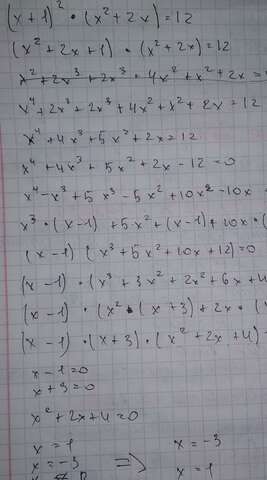 (x+1)² · (x²+2x)=12
(x²+2x+1) · (x²+2x)=12
x²+2x³+2x³ · 4x²+x²+2x =
x⁴+2x³+2x³+4x²+x²+2x=12
x⁴+4x³+5x²+2x=12
x⁴+4x³+5x²+2x-12=0
x⁴-x³+5x³-5x²+10x²-10x
x³·(x-1)+5x²+(x-1)+10x·(
(x-1) (x³+5x²+10x+12)=0
(x-1)·(x³+3x²+2x²+6x+4
(x-1)·(x²·(x+3)+2x·(
(x-1)·(x+3)·(x²+2x+4)=
x-1=0
x+3=0
x²+2x+4=0
x=1
x=-3 => x=-3
x=1